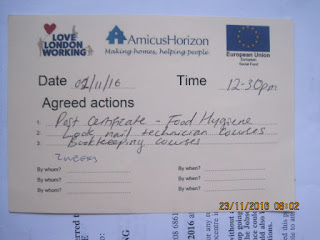 LOVE LONDON WORKING
AmicusHorizon
Making homes, helping people
European Union
European
Social Fund
Date 02/11/16 Time 12-30pm
Agreed actions
1. Post Certificate - Food Hygiene
2. Look nail technician courses
3. Bookkeeping courses
2 weeks
By whom? By when?
1.
2.
3.
23/11/2016 08:02